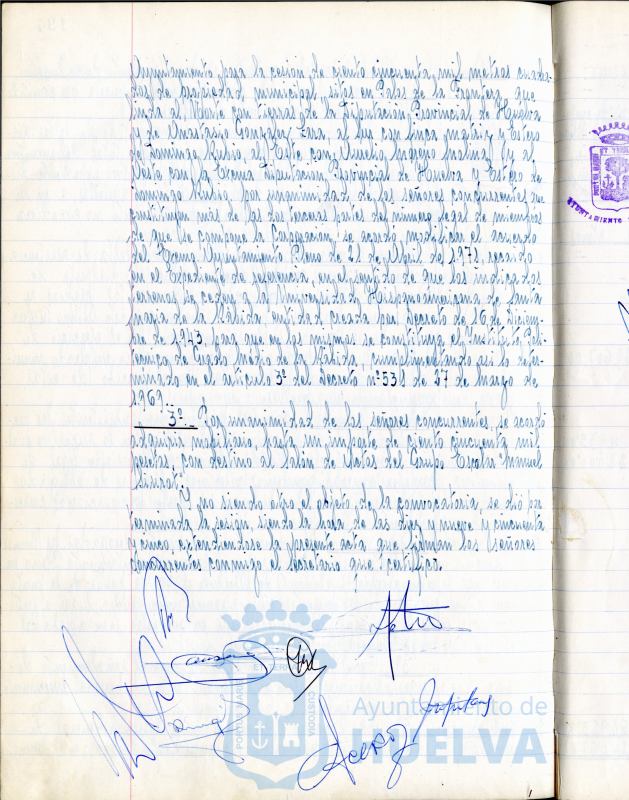 Ayuntamiento para la cesión de ciento cincuenta mil metros cuadra-
dos de propiedad municipal, sitos en Palos de la Frontera, que
linda al Norte con tierras de la Diputación Provincial de Huelva
y de Anastasio González Jara, al Sur con finca matriz y Estero
de Domingo Rubio, al Este con Aurelio Moreno Molina y al
Oeste con la Excma Diputación Provincial de Huelva y Estero de
Domingo Rubio, por unanimidad de los señores concurrentes que
constituyen más de las dos terceras partes del número legal de miembros
de que se compone la Corporación, se acordó modificar el acuerdo
del Excmo Ayuntamiento Pleno de 21 de Abril de 1971, recaido
en el Expediente de referencia, en el sentido de que los indicados
terrenos se ceden a la Universidad Hispanoamericana de Santa
María de la Rábida, entidad creada por Decreto de 16 de Diciem-
bre de 1943, para que en los mismos se constituya el Instituto Poli-
técnico de Grado Medio de la Rábida, cumplimentando así lo deter-
minado en el artículo 3º del Decreto nº 538 de 27 de marzo de
1969.
3º.- Por unanimidad de los señores concurrentes, se acordó
adquirir mobiliario, hasta un importe de ciento cincuenta mil
pesetas, con destino al Salón de Actos del Grupo Escolar Manuel
Siurot.
Y no siendo otro el objeto de la convocatoria, se dió por
terminada la sesión, siendo la hora de las diez y nueve y cincuenta
y cinco, extendiéndose la presente acta que firman los señores
concurrentes conmigo el Secretario que certifico.
Ayuntamiento de
HUELVA